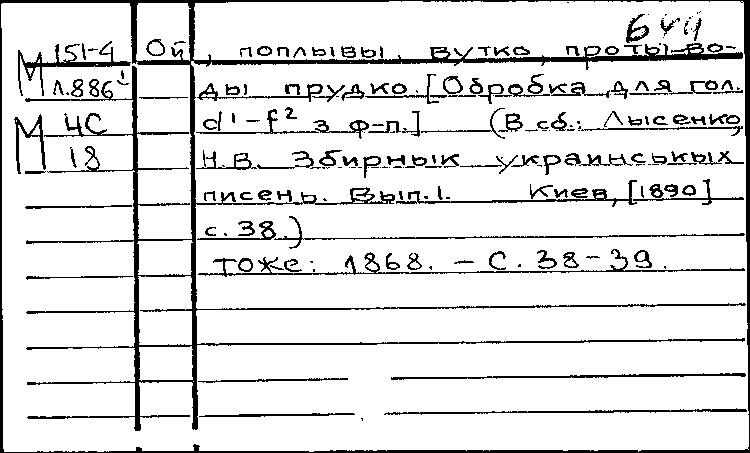 649
М 151-4 Ой, поплывы, вутко, проты во-
Л.886¹ ды прудко. [Обробка для гол.
М ЧС d¹-f² з ф-п.] (В сб.: Лысенко,
18 Н.В. Збирнык украинськых
писень. Вып.1. Киев, [1890]
с. 38.)
тоже: 1868. – С. 38-39.